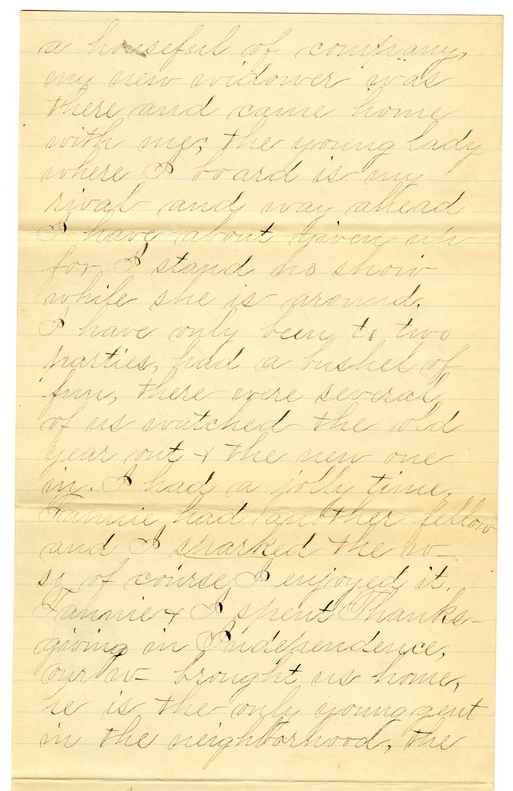 a houseful of company,
my new widower was
there and came home
with me; the young lady
where I board is my
rival and way ahead
I have about given up
for I stand no show
while she is around.
I have only been to two
parties, had a bushel of
fun, there were several
of us watched the old
year out & the new one
in. I had a jolly time,
Fannie had another fellow
and I sparked the w-
so of course I enjoyed it.
Fannie & I spent Thanks-
giving in Independence,
our w- brought us home,
he is the only young gent
in the neighborhood, the